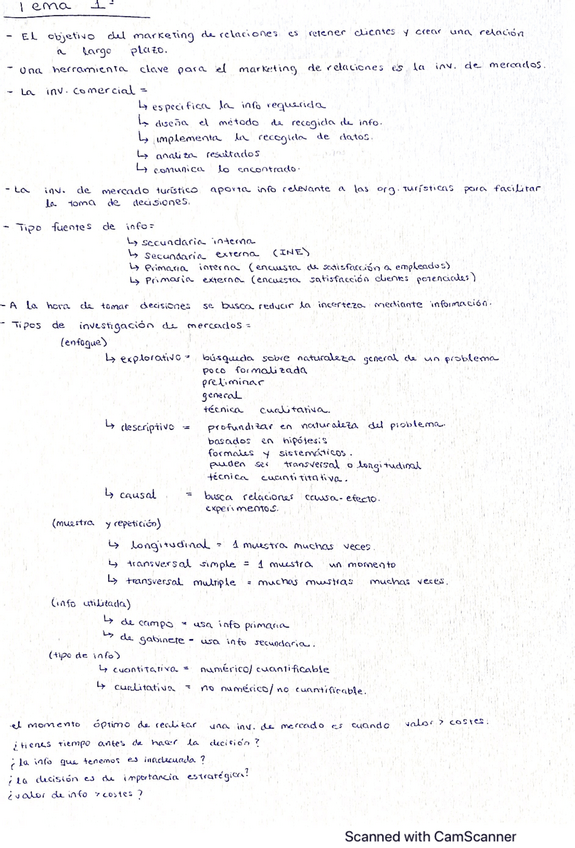 Tema 1:
- El objetivo del marketing de relaciones es retener clientes y crear una relación
a largo plazo.
- una herramienta clave para el marketing de relaciones es la inv. de mercados.
- La inv. comercial =
↳ especifica la info requerida
↳ diseña el método de recogida de info.
↳ implementa la recogida de datos.
↳ analiza resultados
↳ comunica lo encontrado.
- La inv. de mercado turístico aporta info relevante a las org. turísticas para facilitar
la toma de decisiones.
- Tipo fuentes de info =
↳ secundaria interna
↳ secundaria externa (INE)
↳ Primaria interna (encuesta de satisfacción a empleados)
↳ Primaria externa (encuesta satisfacción clientes potenciales)
- A la hora de tomar decisiones se busca reducir la incerteza mediante información.
- Tipos de investigación de mercados =
(enfoque)
↳ explorativo = búsqueda sobre naturaleza general de un problema
poco formalizada
preliminar
general
técnica cualitativa.
↳ descriptivo = profundizar en naturaleza del problema
basados en hipótesis
formales y sistemáticos.
pueden ser transversal o longitudinal
técnica cuantititativa.
↳ causal = busca relaciones causa-efecto.
experimentos.
(muestra y repetición)
↳ longitudinal = 1 muestra muchas veces
↳ transversal simple = 1 muestra un momento
↳ transversal multiple = muchas mustras muchas veces.
(info utilitada)
↳ de campo = usa info primaria
↳ de gabinete = usa info secundaria.
(tipo de info)
↳ cuantitativa = numérico/cuantificable
↳ cualitativa = no numérico/no cuantificable.
el momento óptimo de realitar una inv. de mercado es cuando valor > costes.
¿tienes tiempo antes de hacer la decisión?
¿la info que tenemos es inadecuada?
¿la decisión es de importancia estratégica?
¿valor de info > costes?
Scanned with CamScanner